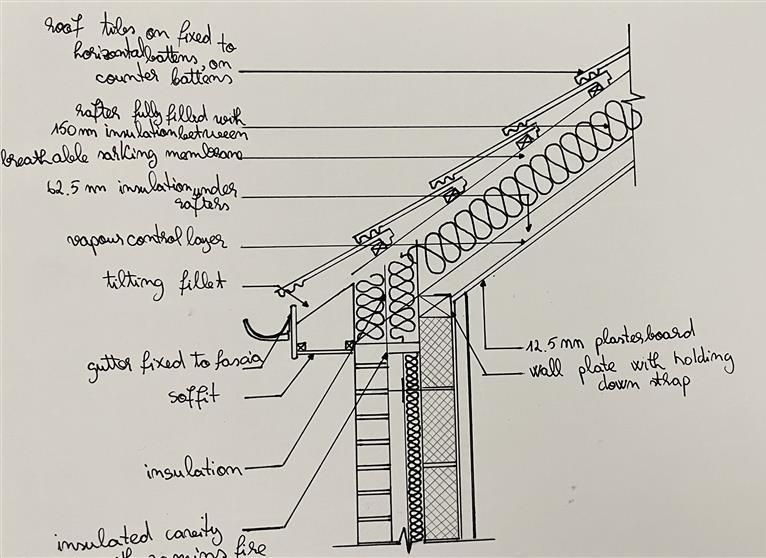 roof tiles on fixed to
horizontal battens, on
counter battens
rafter fully filled with
150 mm insulation between
breathable sarking membrane
62.5 mm insulation under
rafters
vapour control layer
tilting fillet
gutter fixed to fascia
soffit
insulation
insulated cavity
fire
12.5 mm plasterboard
wall plate with holding
down strap